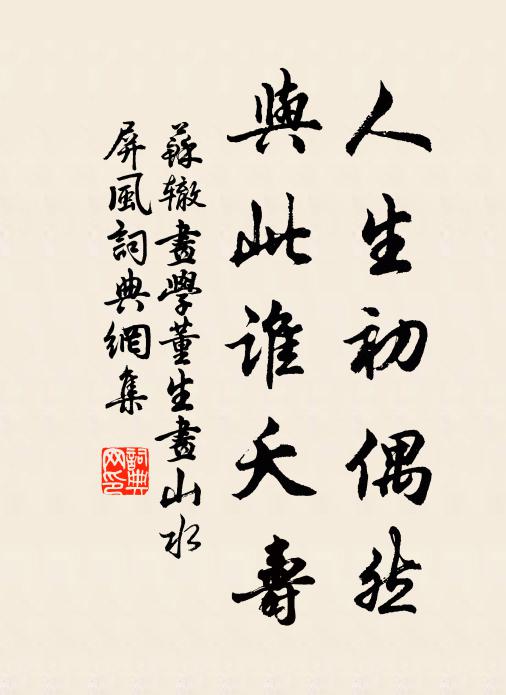 人生初偶然
與此誰夭壽
蘇辙畫學董生畫山水
屏風詞典網集
詞典
网印